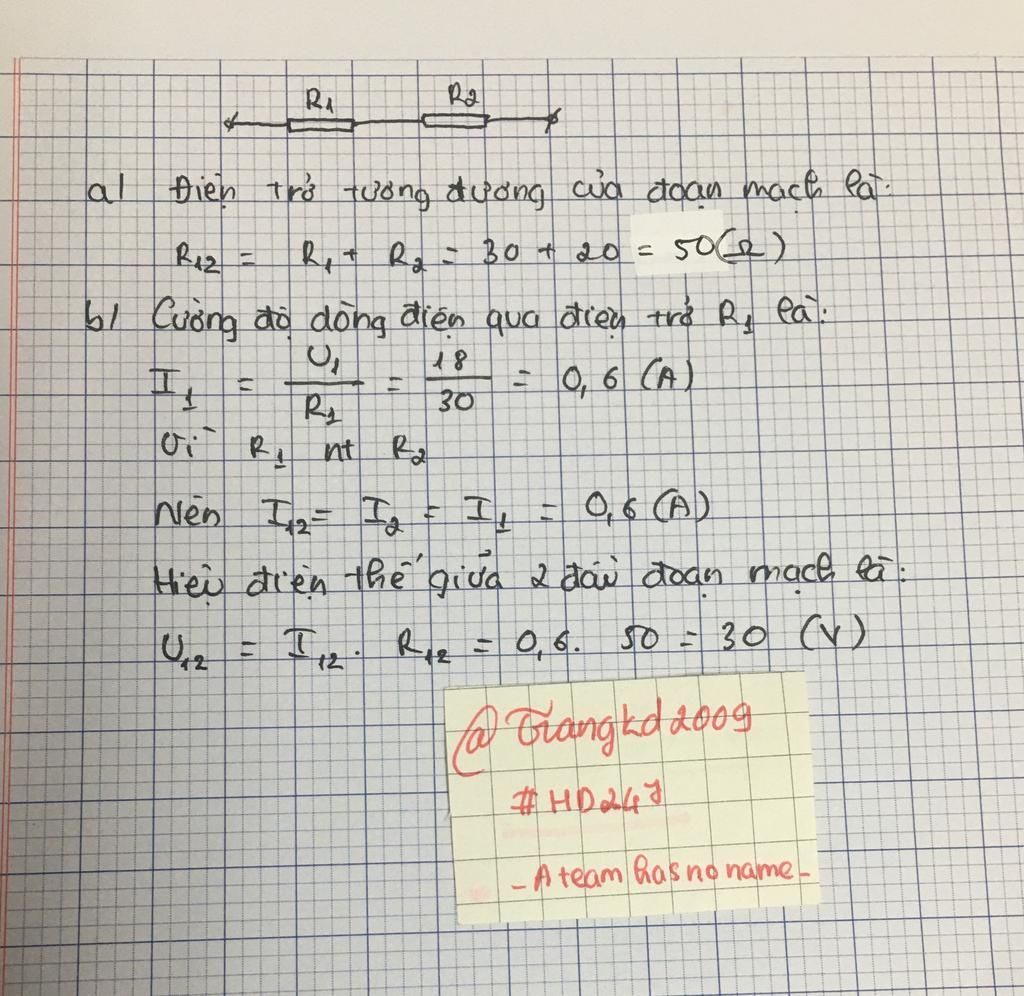 R1 R2
a/ Điện trở tương đương của đoạn mạch là:
R12 = R1 + R2 = 30 + 20 = 50(Ω)
b/ Cường độ dòng điện qua điện trở R1 là:
I1 = U1/R1 = 18/30 = 0,6 (A)
Vì R1 nt R2
Nên I12 = I2 = I1 = 0,6 (A)
Hiệu điện thế giữa 2 đầu đoạn mạch là:
U12 = I12. R12 = 0,6. 50 = 30 (V)
@Giangkd2009
#HD247
- A team has no name -